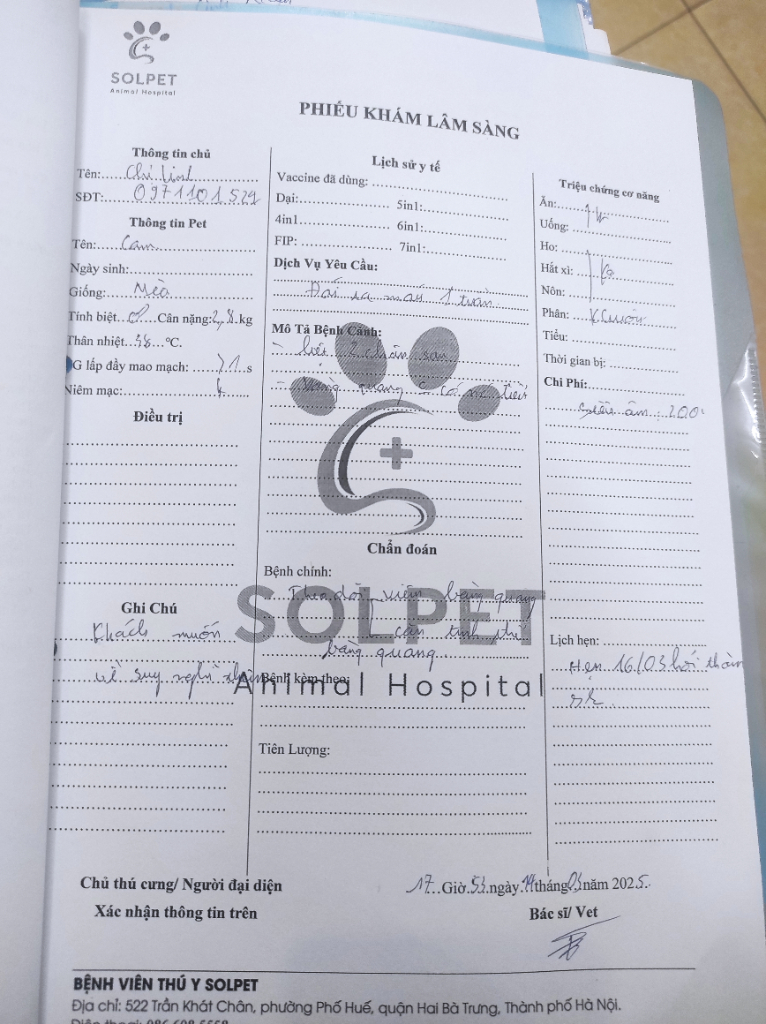 SOLPET
Animal Hospital
PHIẾU KHÁM LÂM SÀNG
Thông tin chủ
Tên: Chị Linh
SĐT: 0971101529
Thông tin Pet
Tên: Cam
Ngày sinh:
Giống: Mèo
Tính biệt Cân nặng: 2,8 kg
Thân nhiệt 38 °C.
G lấp đầy mao mạch: >1 s
Niêm mạc:
Điều trị
Ghi Chú
Khách muốn
về suy nghĩ thêm
Lịch sử y tế
Vaccine đã dùng:
Dại: 5in1:
4in1 6in1:
FIP: 7in1:
Dịch Vụ Yêu Cầu:
Đái ra máu 1 tuần
Mô Tả Bệnh Cảnh:
- liệt 2 chân sau
- Bàng quang có nước tiểu
Chẩn đoán
Bệnh chính:
Theo dõi viêm bàng quang
bàng quang
Bệnh kèm theo:
SOLPET
Animal Hospital
Tiên Lượng:
Triệu chứng cơ năng
Ăn:
Uống:
Ho:
Hắt xì: Ko
Nôn:
Phân: K
Tiểu:
Thời gian bị:
Chi Phí:
Siêu âm: 200
Lịch hẹn:
Hẹn 16/03 hỏi thăm
sk
Chủ thú cưng/ Người đại diện
Xác nhận thông tin trên
17 Giờ 53 ngày 14 tháng 03 năm 2025.
Bác sĩ/ Vet
BỆNH VIỆN THÚ Y SOLPET
Địa chỉ: 522 Trần Khát Chân, phường Phố Huế, quận Hai Bà Trưng, Thành phố Hà Nội.